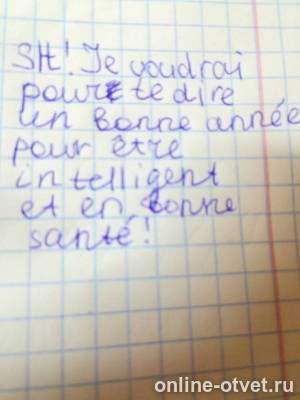 SH! Je voudrai
pour te dire
un bonne année
pour être
intelligent
et en bonne
santé!
online-otvet.ru